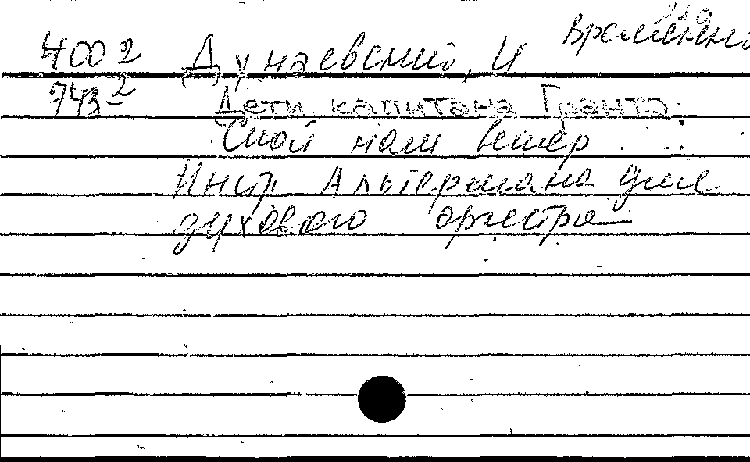 Временно
400 2 Дунаевский, И
743 2 Дети капитана Гранта.
Спой нам ветер . . .
Инстр Альтермана для
духового оркестра